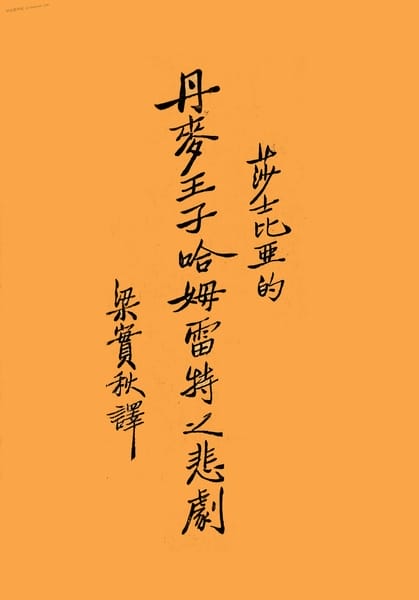 莎士比亚的
丹麥王子哈姆雷特之悲劇
梁實秋譯